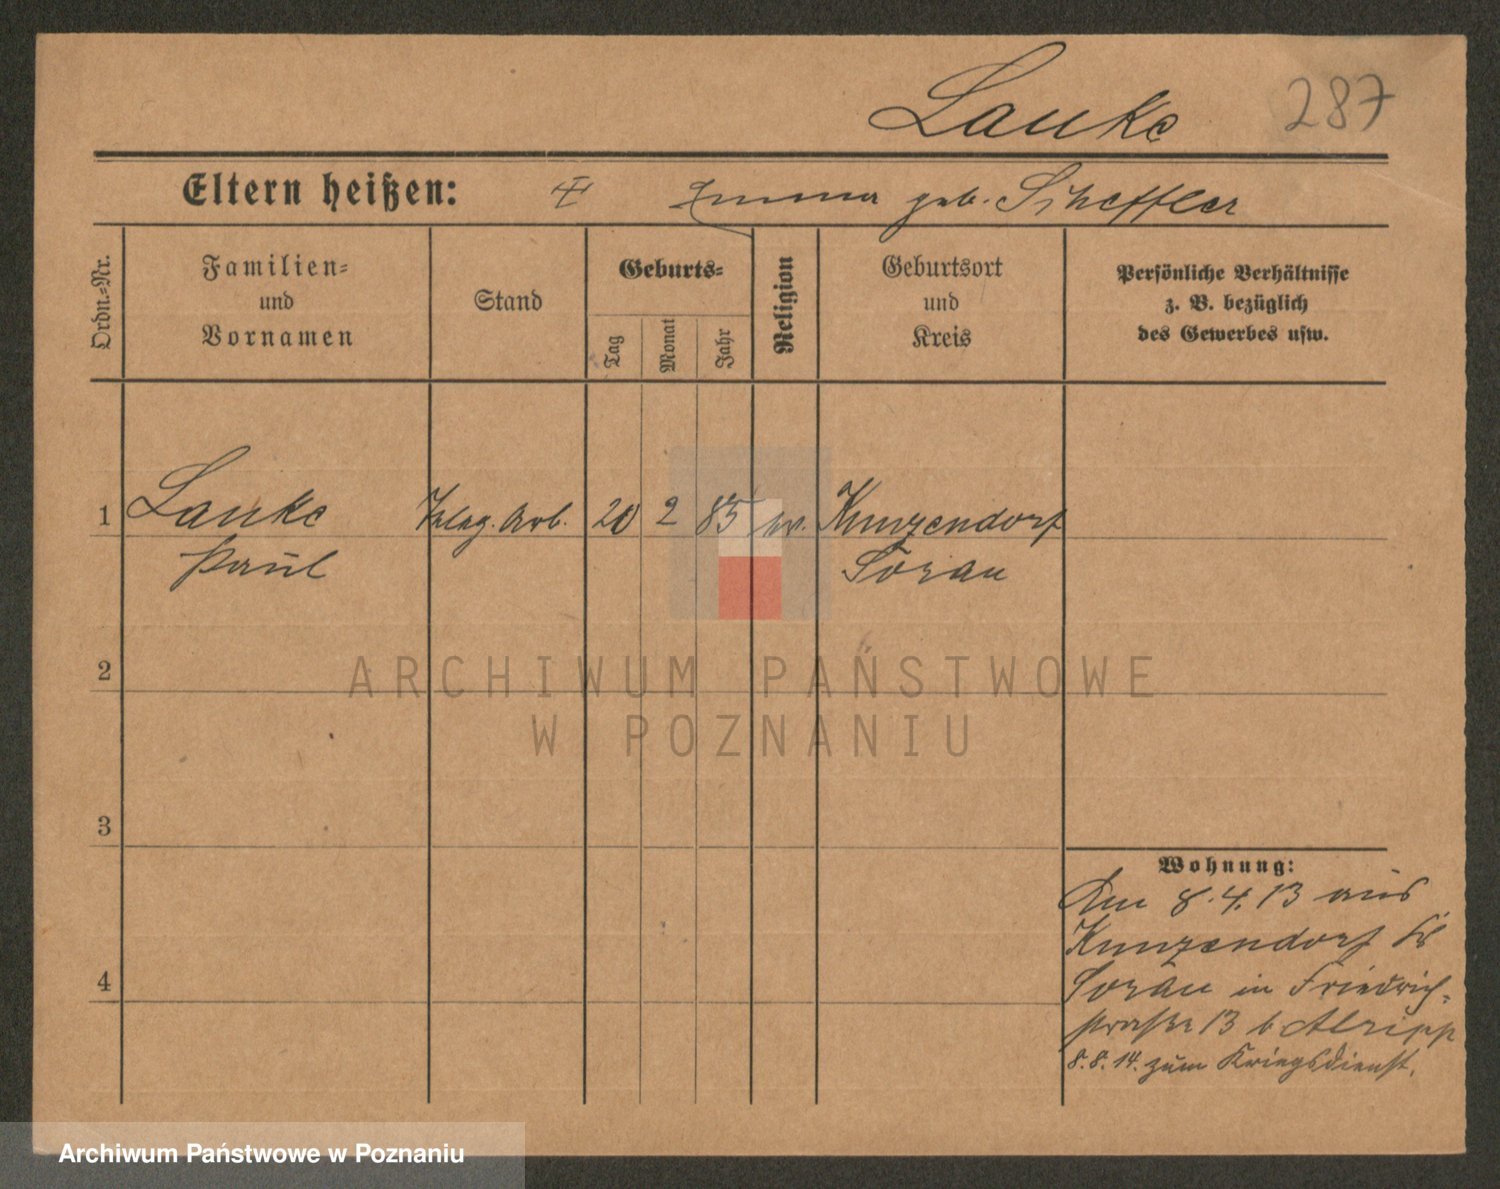 Lauke 287
Eltern heißen: Emma geb. Scheffler
Ordn.-Nr.
Familien-
und
Vornamen
Stand
Geburts-
Tag
Monat
Jahr
Religion
Geburtsort
und
Kreis
Persönliche Verhältnisse
z. B. bezüglich
des Gewerbes usw.
1 Lauke Arb. 20 2 85 ev. Kunzendorf
Paul Sorau
2
3
4
Wohnung:
Am 8.4.13 aus
Kunzendorf Kr
Sorau in Friedrich-
straße 13 b
8.8.14. zum Kriegsdienst.
ARCHIWUM PAŃSTWOWE
W POZNANIU
Archiwum Państwowe w Poznaniu